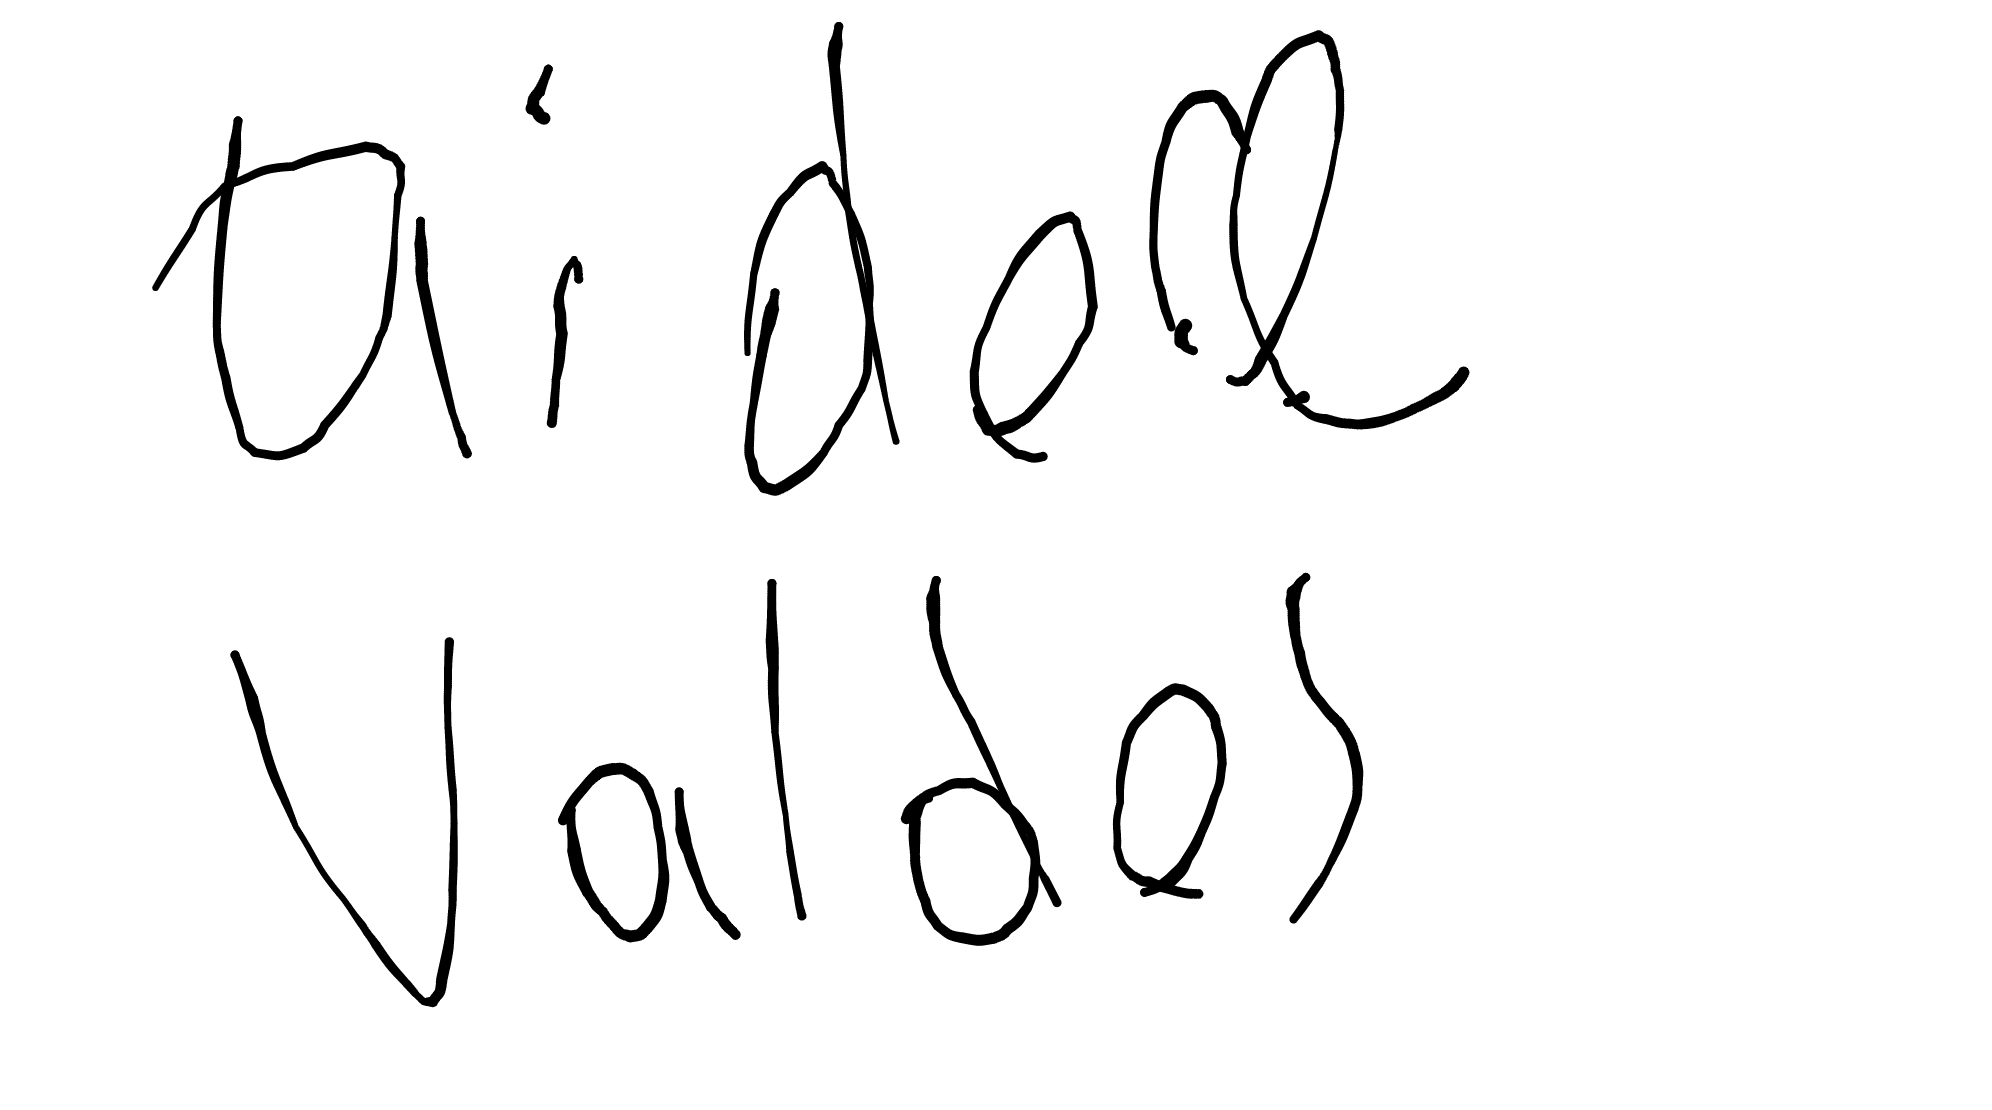 aidel
Valdes